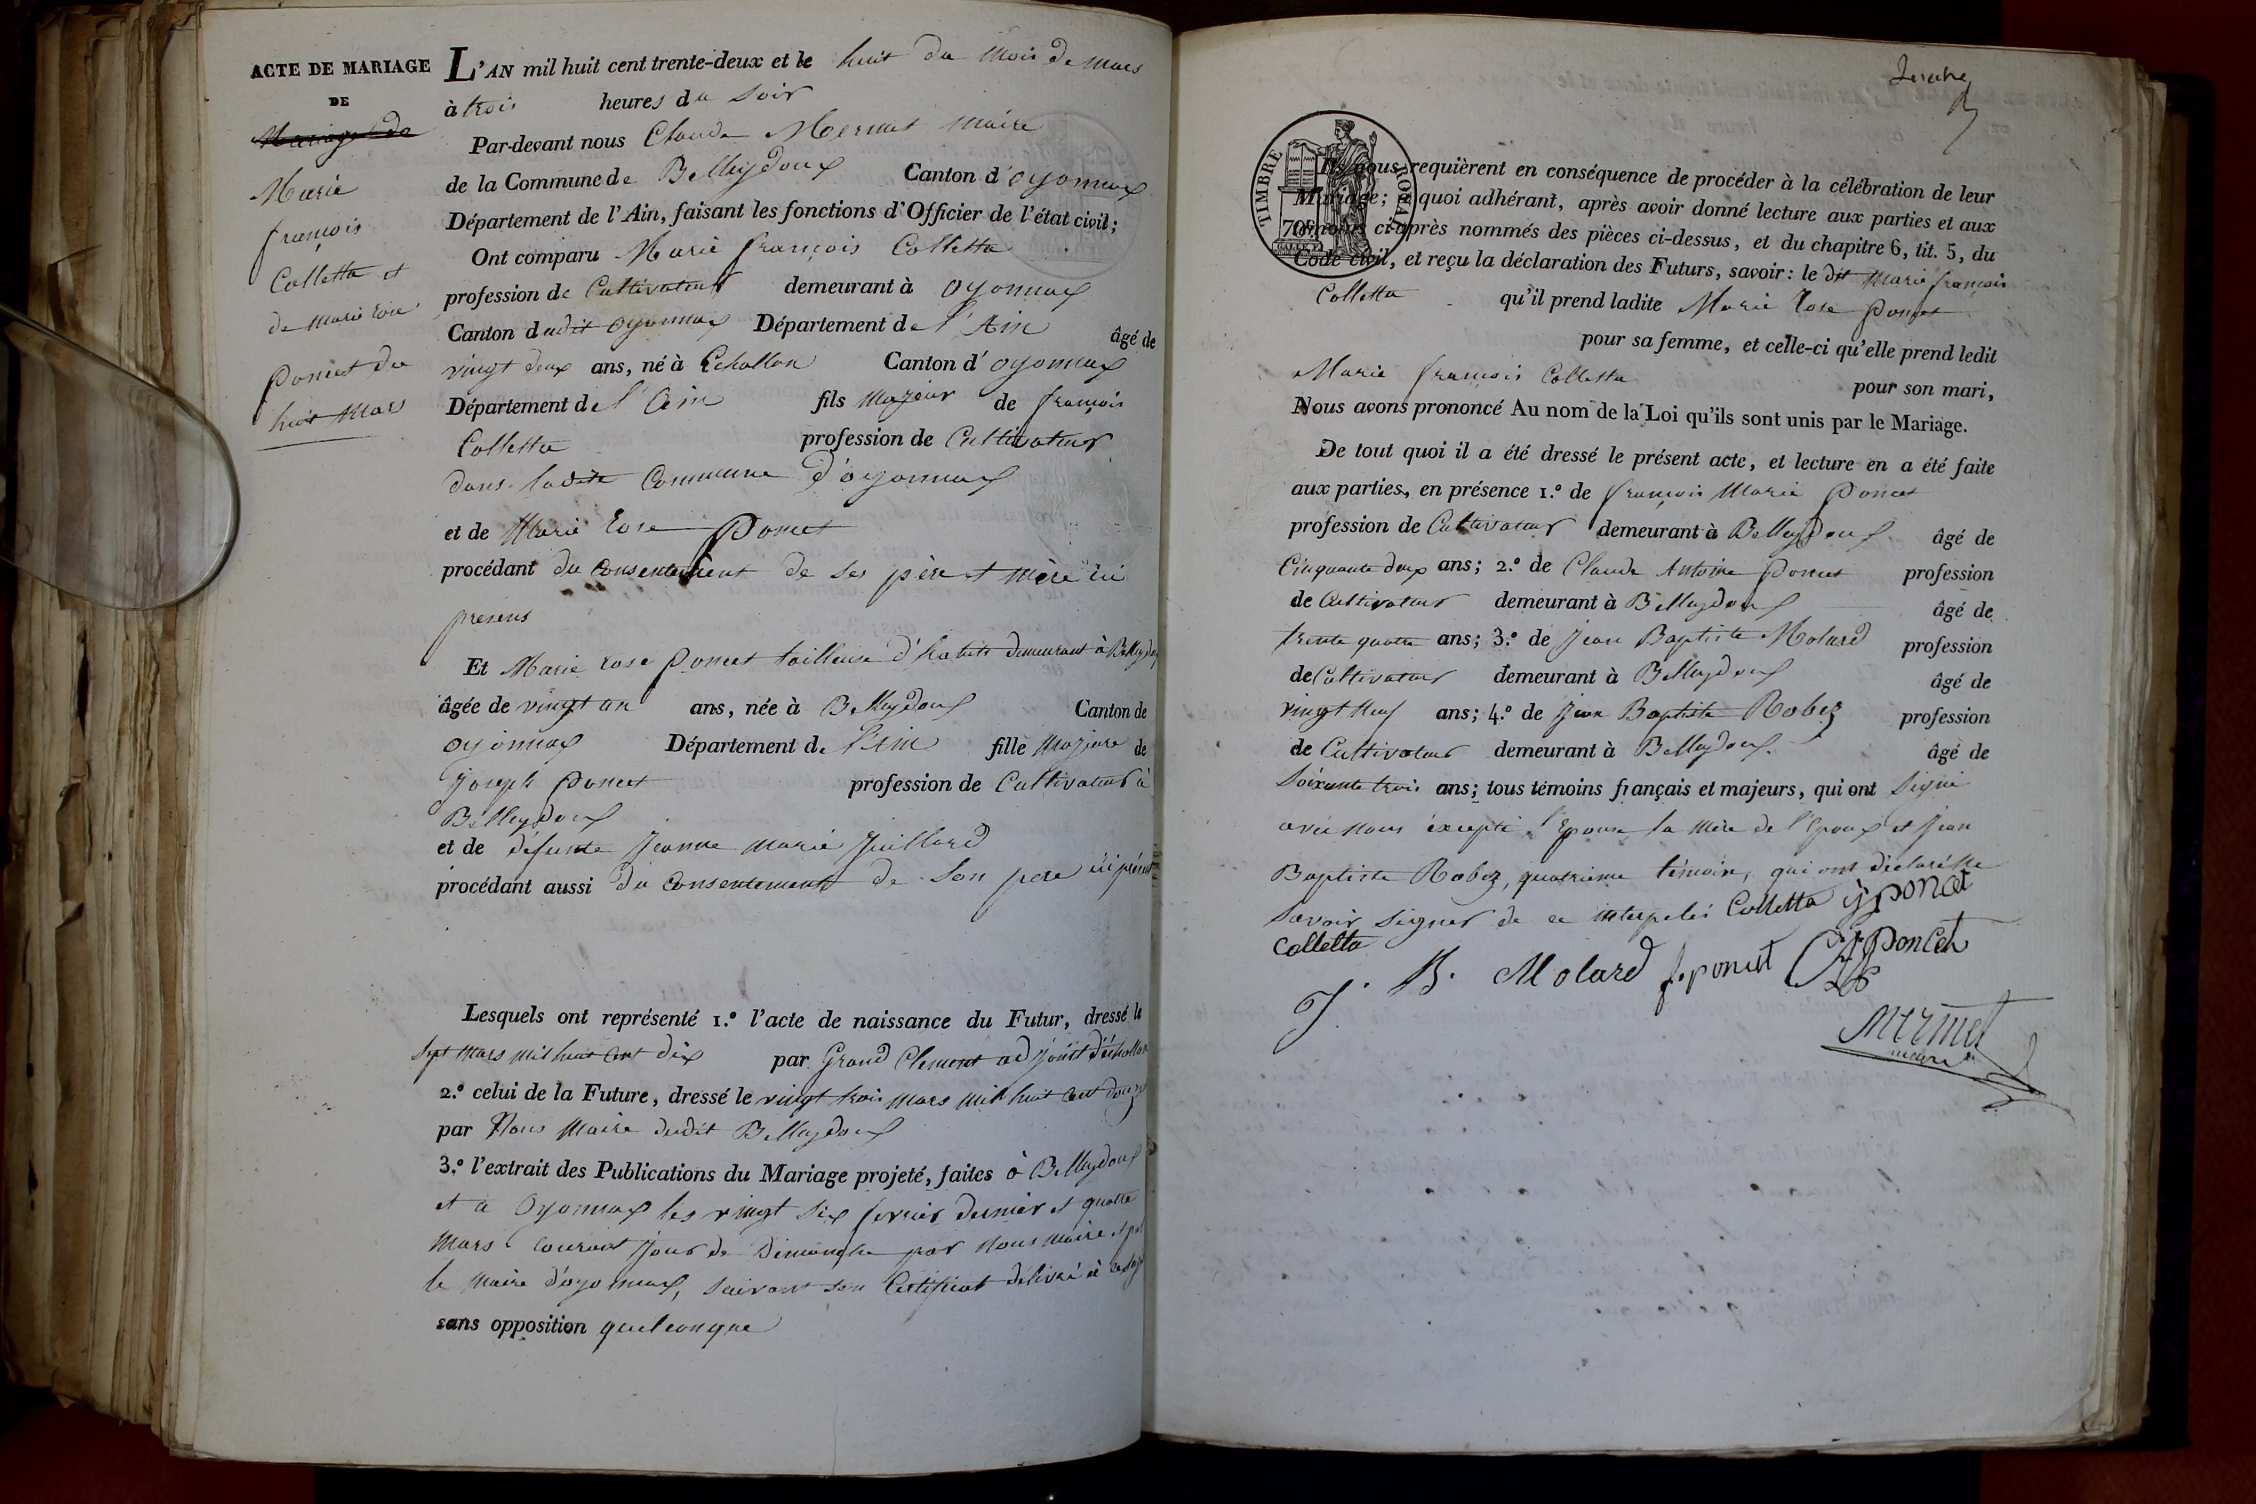 ACTE DE MARIAGE
DE
Mariage de
Marie
françois
Colletta et
de marie rose
Poncet du
huit Mars
L'AN mil huit cent trente-deux et le huit du mois de mars
à trois heures du soir
Par-devant nous Claude Mermet maire
de la Commune de Belleydoux Canton d'oyonnax
Département de l'Ain, faisant les fonctions d'Officier de l'état civil;
Ont comparu Marie françois Colletta
profession de Cultivateur demeurant à oyonnax
Canton dudit oyonnax Département de l'Ain âgé de
vingt deux ans, né à Echallon Canton d'oyonnax
Département de l'Ain fils Majeur de françois
Colletta profession de Cultivateur
dans ladite Commune d'oyonnax
et de Marie rose Poncet
procédant du consentement de ses père et mère ici
presens
Et Marie rose Poncet tailleuse d'habits demeurant à Belleydoux
âgée de vingt un ans, née à Belleydoux Canton de
oyonnax Département de l'Ain fille Majeure de
Joseph Poncet profession de Cultivateur à
Belleydoux
et de défunte Jeanne marie Juillard
procédant aussi du consentement de son pere ici présent
Lesquels ont représenté 1.º l'acte de naissance du Futur, dressé le
sept mars mil huit cent dix par Grand Clement adjoint d'échallon
2.º celui de la Future, dressé le vingt trois mars mil huit cent douze
par Nous Maire dudit Belleydoux
3.º l'extrait des Publications du Mariage projeté, faites à Belleydoux
et à Oyonnax les vingt six fevrier dernier et quatre
mars courant jour de Dimanche par nous maire et par
le maire d'oyonnax, suivant son Certificat délivré à ce sujet
sans opposition quelconque
TIMBRE ROYAL
70c
Ils nous requièrent en conséquence de procéder à la célébration de leur
Mariage; à quoi adhérant, après avoir donné lecture aux parties et aux
témoins ci-après nommés des pièces ci-dessus, et du chapitre 6, tit. 5, du
Code civil, et reçu la déclaration des Futurs, savoir: le dit Marie françois
Colletta qu'il prend ladite Marie rose Poncet
pour sa femme, et celle-ci qu'elle prend ledit
Marie françois Colletta pour son mari,
Nous avons prononcé Au nom de la Loi qu'ils sont unis par le Mariage.
De tout quoi il a été dressé le présent acte, et lecture en a été faite
aux parties, en présence 1.º de françois Marie Poncet
profession de Cultivateur demeurant à Belleydoux âgé de
Cinquante deux ans; 2.º de Claude Antoine Poncet profession
de Cultivateur demeurant à Belleydoux âgé de
trente quatre ans; 3.º de Jean Baptiste Molard profession
de Cultivateur demeurant à Belleydoux âgé de
vingt neuf ans; 4.º de Jean Baptiste Robez profession
de Cultivateur demeurant à Belleydoux âgé de
soixante trois ans; tous témoins français et majeurs, qui ont signé
avec nous excepté l'Epouse la mère de l'Epoux et Jean
Baptiste Robez, quatrieme témoin, qui ont déclaré ne
savoir signer de ce interpelés Colletta jj poncet
Colletta
J. B. Molard f. poncet Poncet
Mermet
maire